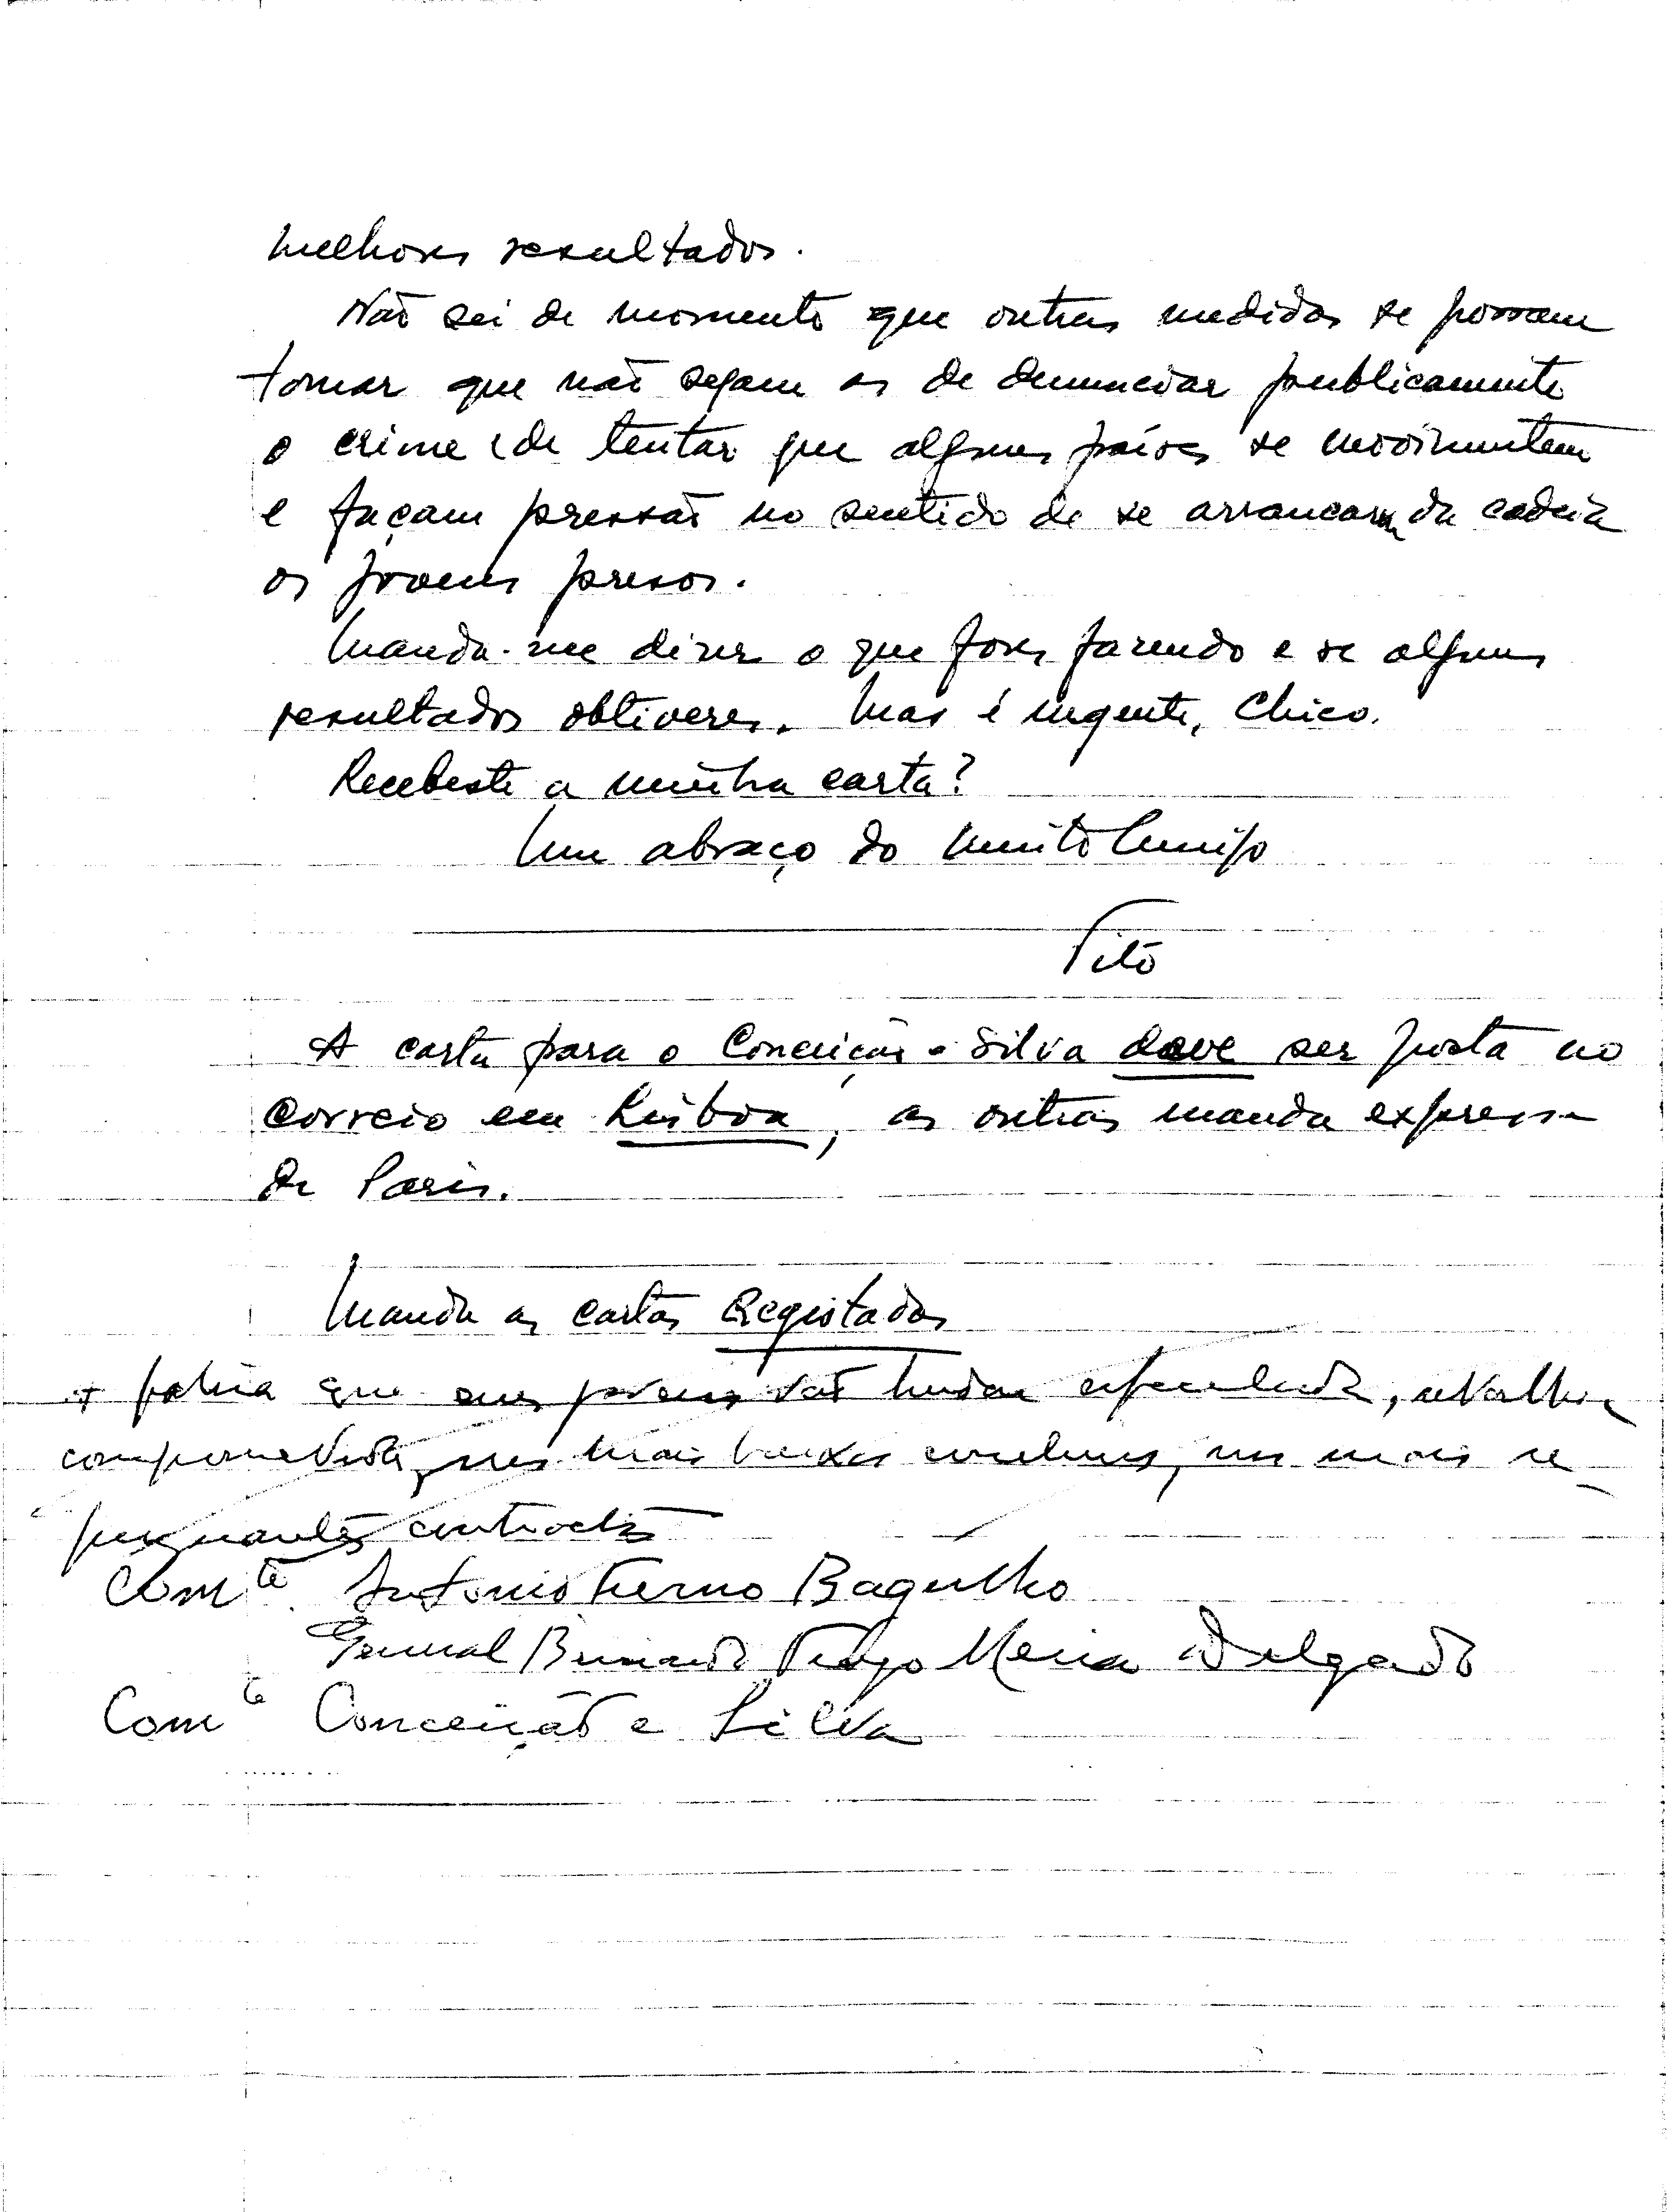 melhores resultados.
Não sei de momento que outras medidas se possam
tomar que não sejam as de denunciar publicamente
o crime e de tentar que alguns países se movimentem
e façam pressão no sentido de se arrancarem da cadeia
os jovens presos.
Manda-me dizer o que fores fazendo e se alguns
resultados obtiveres. Mas é urgente, Chico.
Recebeste a minha carta?
Um abraço do muito amigo
Tito
A carta para o Conceição e Silva deve ser posta no
correio em Lisboa, as outras manda expresso
de Paris.
Manda as cartas Registadas
que jovens vão
nos mais baixos nos mais re
pugnantes contractos
Comte. António Bagulho
General Delgado
Comte Conceição e Silva